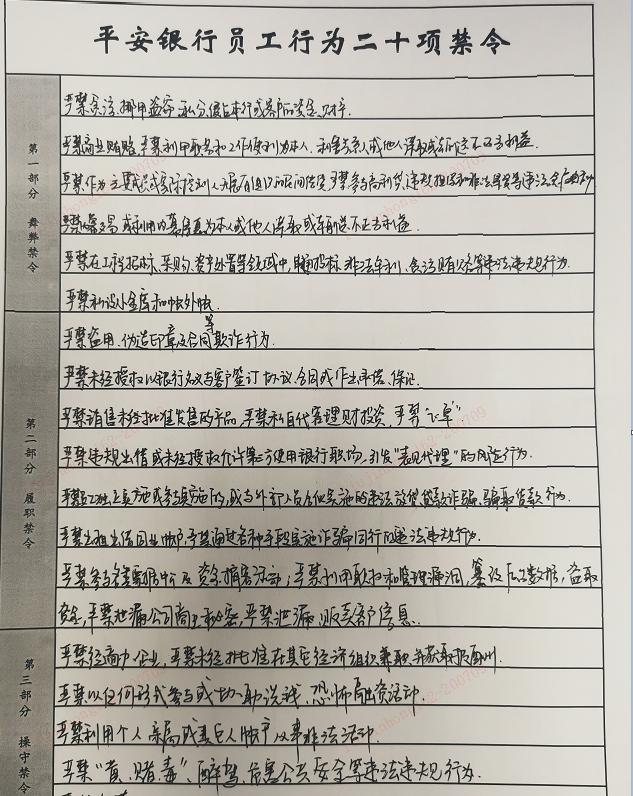 平安银行员工行为二十项禁令
第一部分 舞弊禁令
严禁贪污、挪用、盗窃、私分、侵占本行或客户的资金、财产.
严禁商业贿赂,严禁利用职务和工作便利为本人、利害关系人或他人谋取或输送不正当利益.
严禁作为主要成员或实际控制人开展有组织的民间借贷,严禁参与高利贷、违规担保和非法集资等违法
严禁内幕交易或利用内幕信息为本人或他人谋取或输送不正当利益.
严禁在工程招标、采购、资产处置等领域中,串通投标、非法牟利、贪污贿赂等违法违规行为.
严禁私设小金库和帐外账
第二部分 履职禁令
严禁盗用、伪造印章及合同等欺诈行为.
严禁未经授权以银行名义与客户签订协议、合同或作出承诺、保证.
严禁销售未经批准发售的产品,严禁私自代客理财投资,严禁"飞单"
严禁违规出借或未经授权允许第三方使用银行职场,引发"表见代理"的风险行为.
严禁独立实施或参与实施的,或与外部人员合伙实施的违法放贷、贷款诈骗、骗取贷款行为.
严禁出租出借同业帐户,严禁通过各种手段实施诈骗同行的违法违规行为.
严禁参与各类票据中介及资金掮客活动;严禁利用职权和管理漏洞,篡改后台数据,盗取
资金,严禁泄漏公司商业秘密,严禁泄漏、贩卖客户信息.
第三部分 操守禁令
严禁经商办企业,严禁未经批准在其它经济组织兼职并获取报酬.
严禁以任何形式参与或协助洗钱、恐怖融资活动.
严禁利用个人、亲属或其它人帐户从事非法活动.
严禁"黄、赌、毒"、醉驾、危害公共安全等违法违规行为.